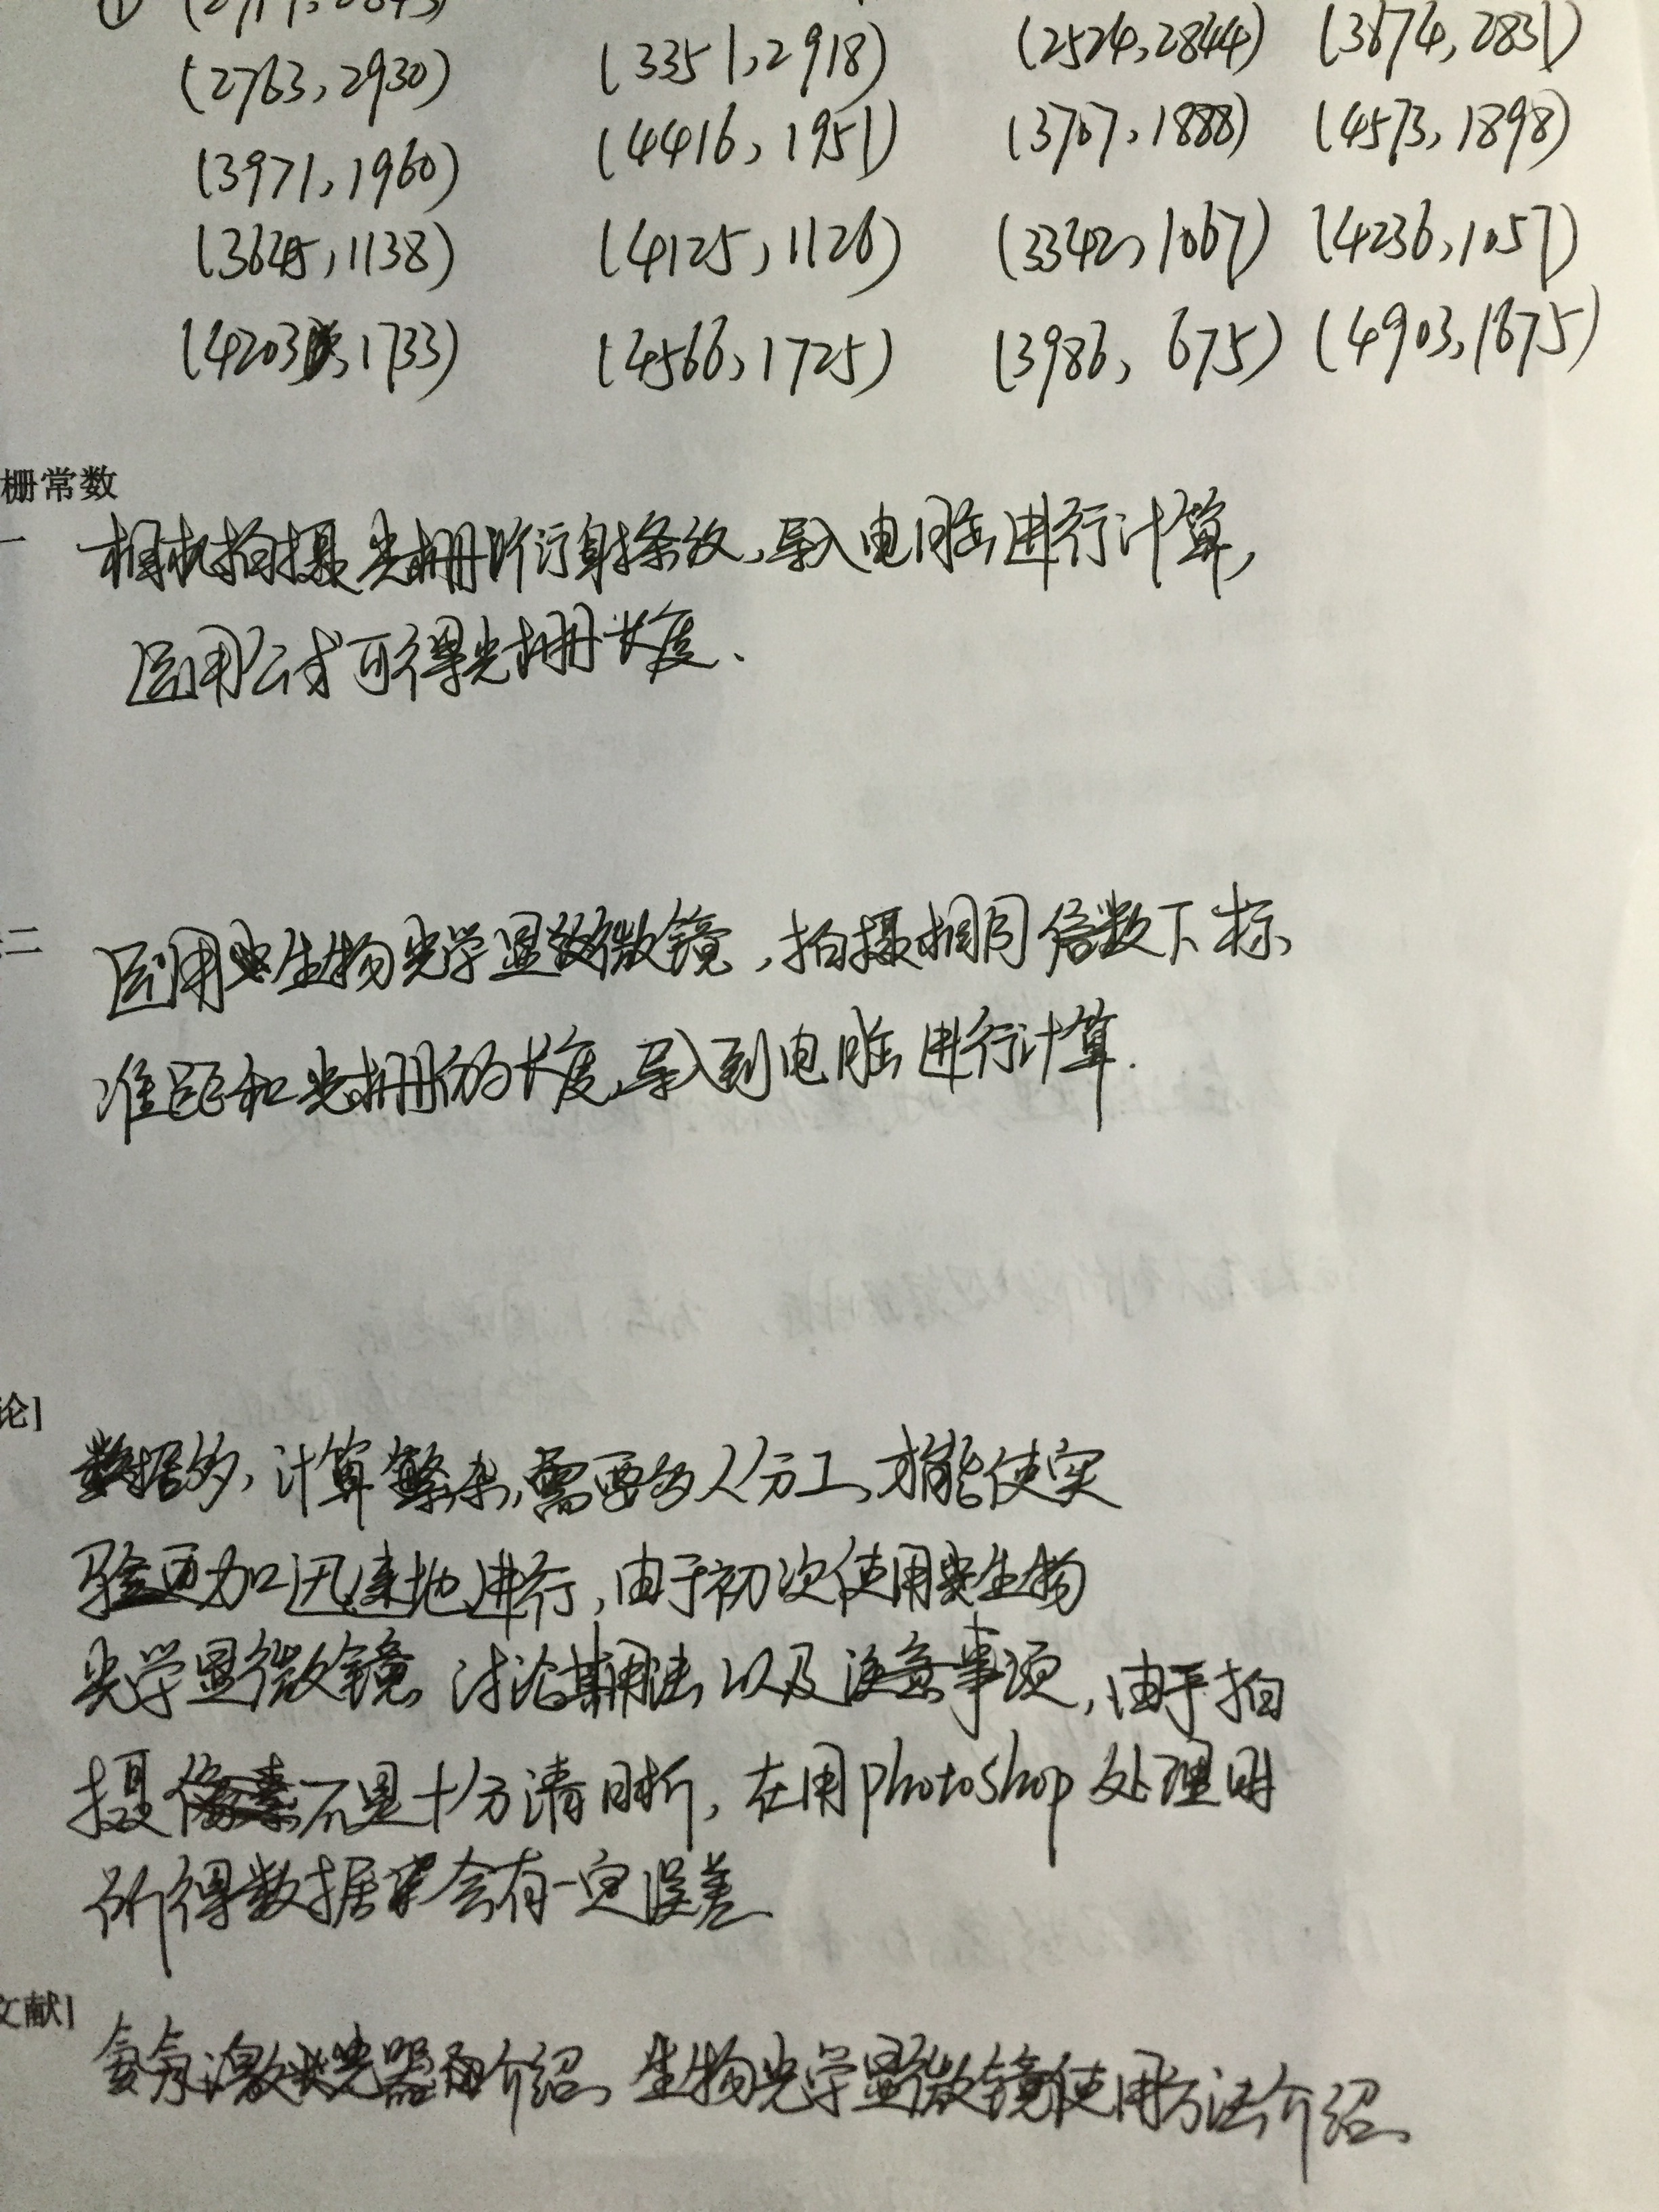 (2763,2930) (3351,2918) (2524,2844) (3674,2831)
(3971,1960) (4416,1951) (3707,1888) (4573,1898)
(3645,1138) (4125,1126) (3342,1067) (4236,1057)
(4203,1733) (4566,1725) (3986,675) (4903,1675)
栅常数
一 相机拍摄光栅衍射条纹,导入电脑进行计算,
运用公式可得光栅长度.
二 运用生物光学显微镜,拍摄相同倍数下标
准距和光栅的长度,导入到电脑进行计算.
论]
数据多,计算繁杂,需要多人分工,才能使实
验更加迅速地进行,由于初次使用生物
光学显微镜,讨论其用法以及注意事项,由于拍
摄像素不是十分清晰,在用photoshop处理时
所得数据会有一定误差
文献]
氦氖激光器介绍、生物光学显微镜使用方法介绍、